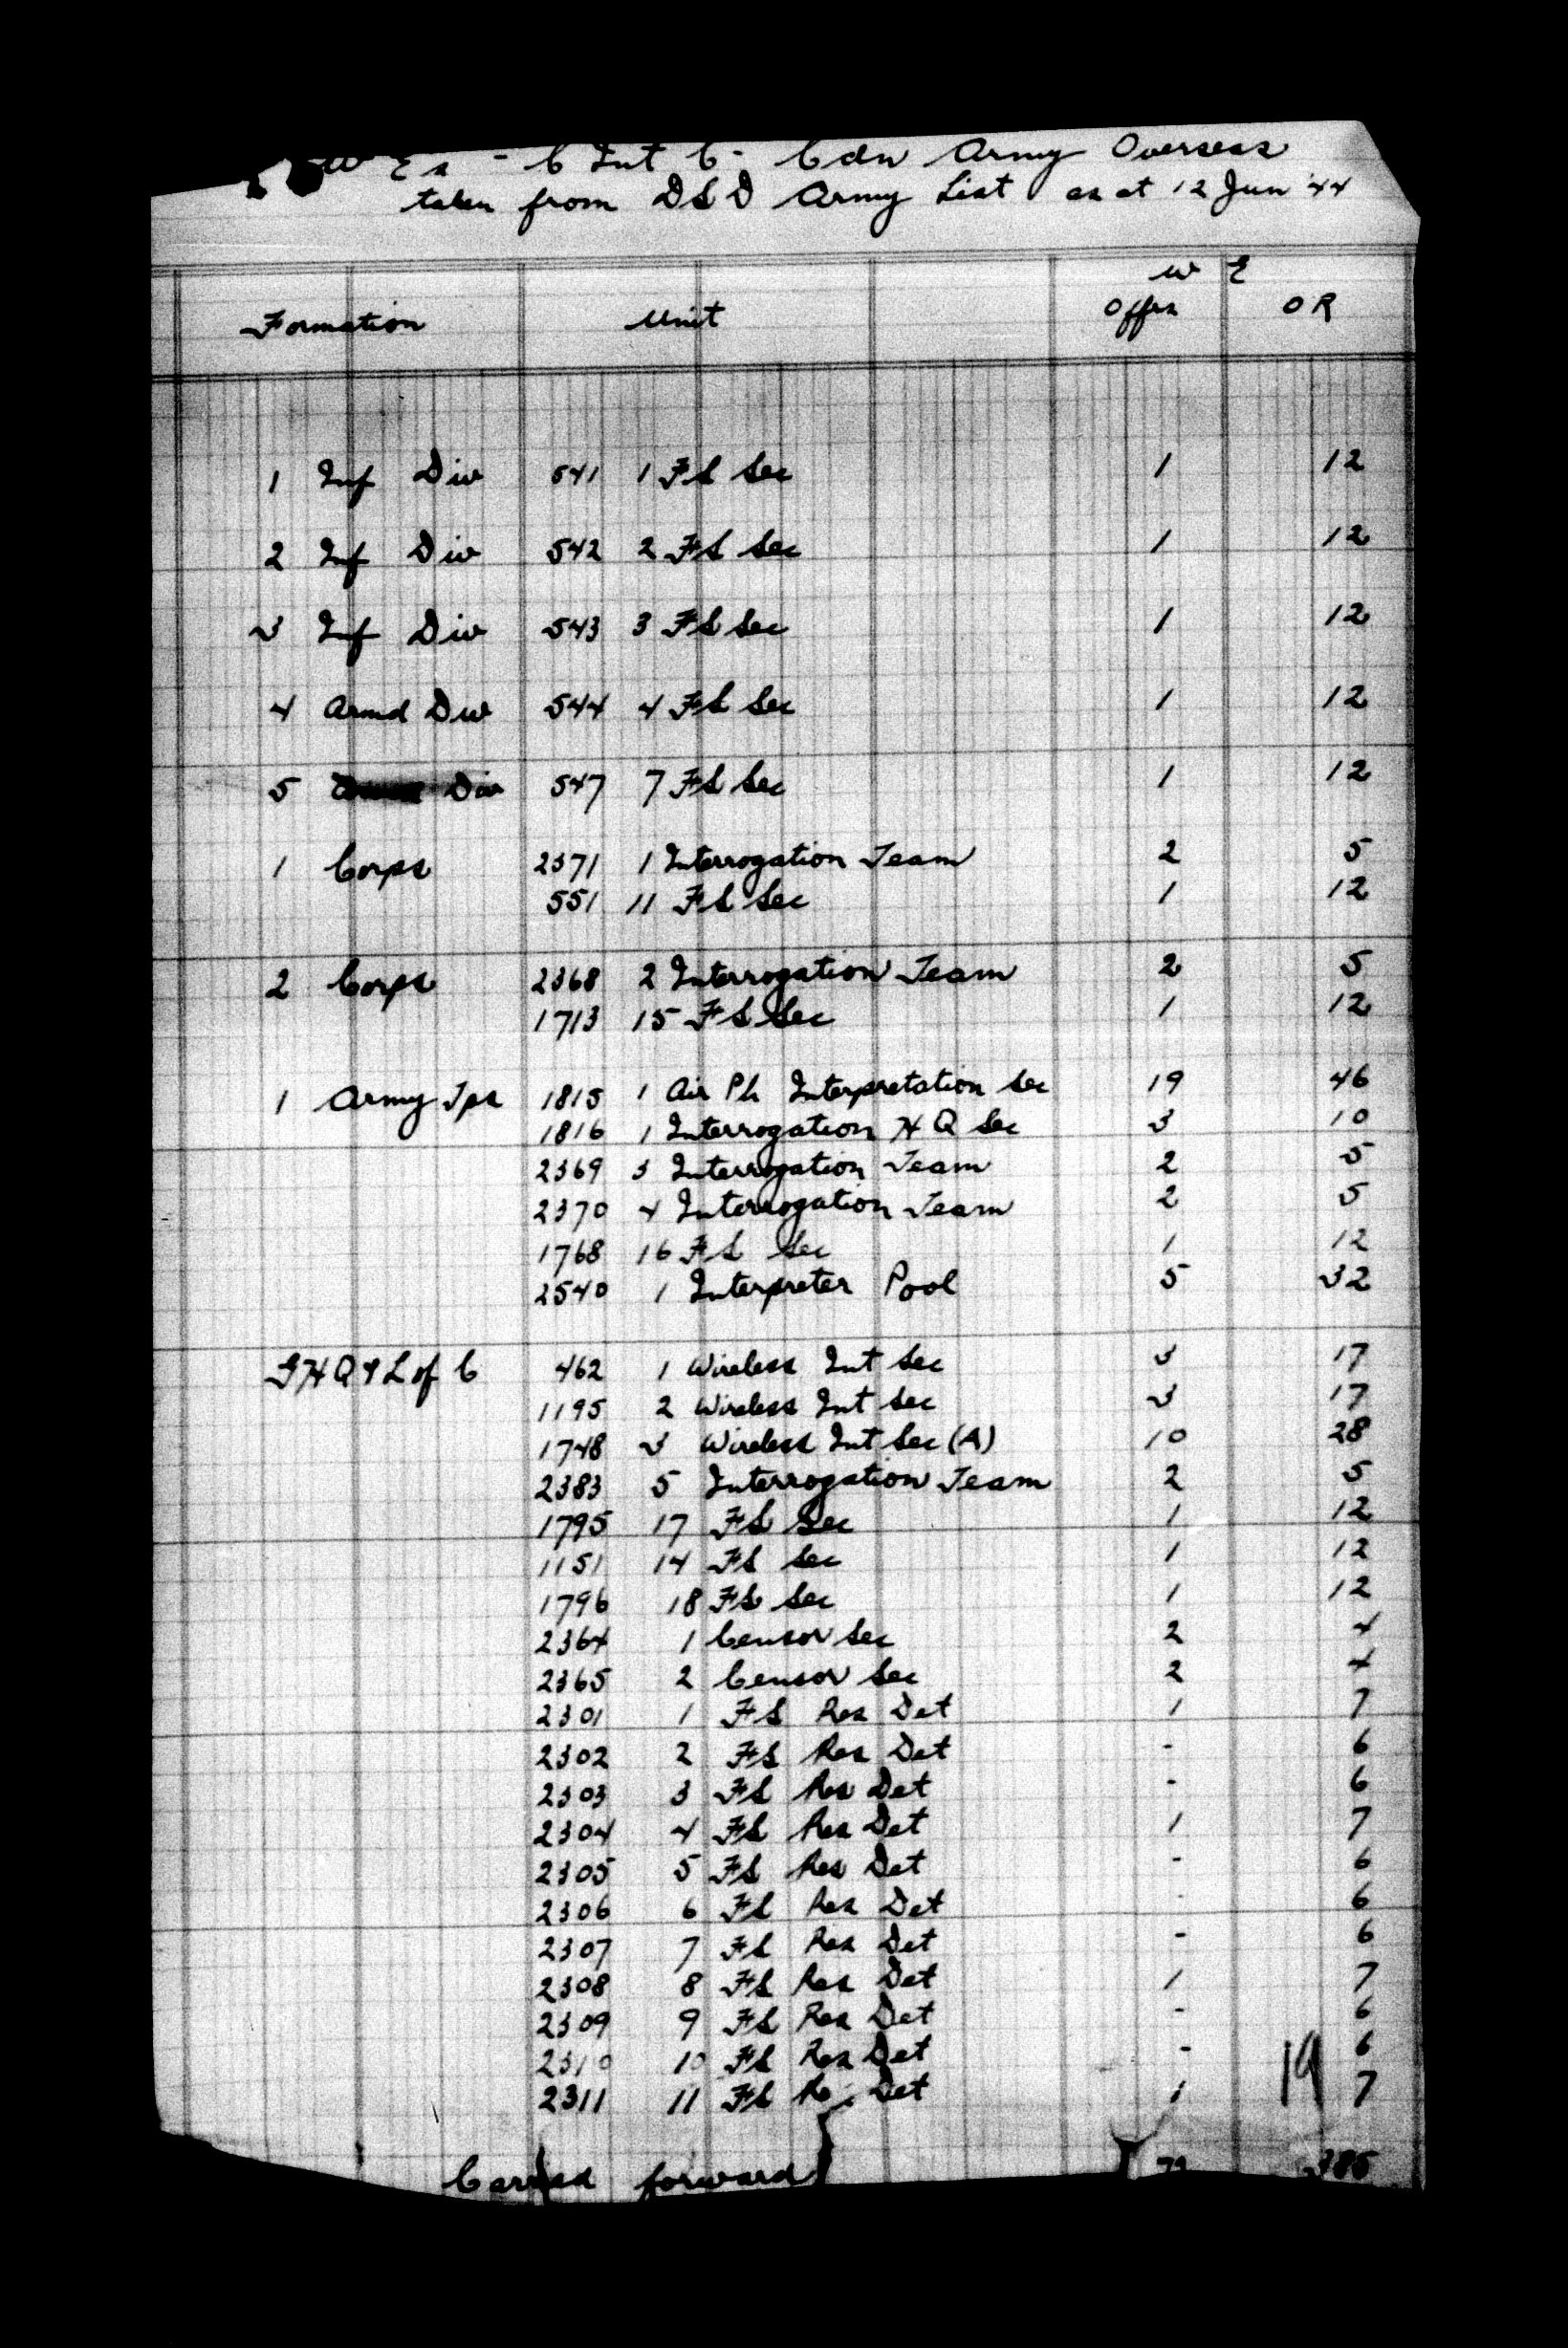 W Es - C Int C - Cdn Army Overseas
taken from DSD Army List as at 12 Jun '44
W E
Formation Unit Offrs OR
1 Inf Div 541 1 FS Sec 1 12
2 Inf Div 542 2 FS Sec 1 12
3 Inf Div 543 3 FS Sec 1 12
4 Armd Div 544 4 FS Sec 1 12
5 Div 547 7 FS Sec 1 12
1 Corps 2371 1 Interrogation Team 2 5
551 11 FS Sec 1 12
2 Corps 2368 2 Interrogation Team 2 5
1713 15 FS Sec 1 12
1 Army Tps 1815 1 Air Ph Interpretation Sec 19 46
1816 1 Interrogation HQ Sec 3 10
2369 3 Interrogation Team 2 5
2370 4 Interrogation Team 2 5
1768 16 FS Sec 1 12
2540 1 Interpreter Pool 5 32
GHQ & L of C 462 1 Wireless Int Sec 3 17
1195 2 Wireless Int Sec 3 17
1748 3 Wireless Int Sec (A) 10 28
2383 5 Interrogation Team 2 5
1795 17 FS Sec 1 12
1151 14 FS Sec 1 12
1796 18 FS Sec 1 12
2364 1 Censor Sec 2 4
2365 2 Censor Sec 2 4
2301 1 FS Res Det 1 7
2302 2 FS Res Det - 6
2303 3 FS Res Det - 6
2304 4 FS Res Det 1 7
2305 5 FS Res Det - 6
2306 6 FS Res Det - 6
2307 7 FS Res Det - 6
2308 8 FS Res Det 1 7
2309 9 FS Res Det - 6
2310 10 FS Res Det - 6
2311 11 FS Res Det 1 19 7
Carried forward 385